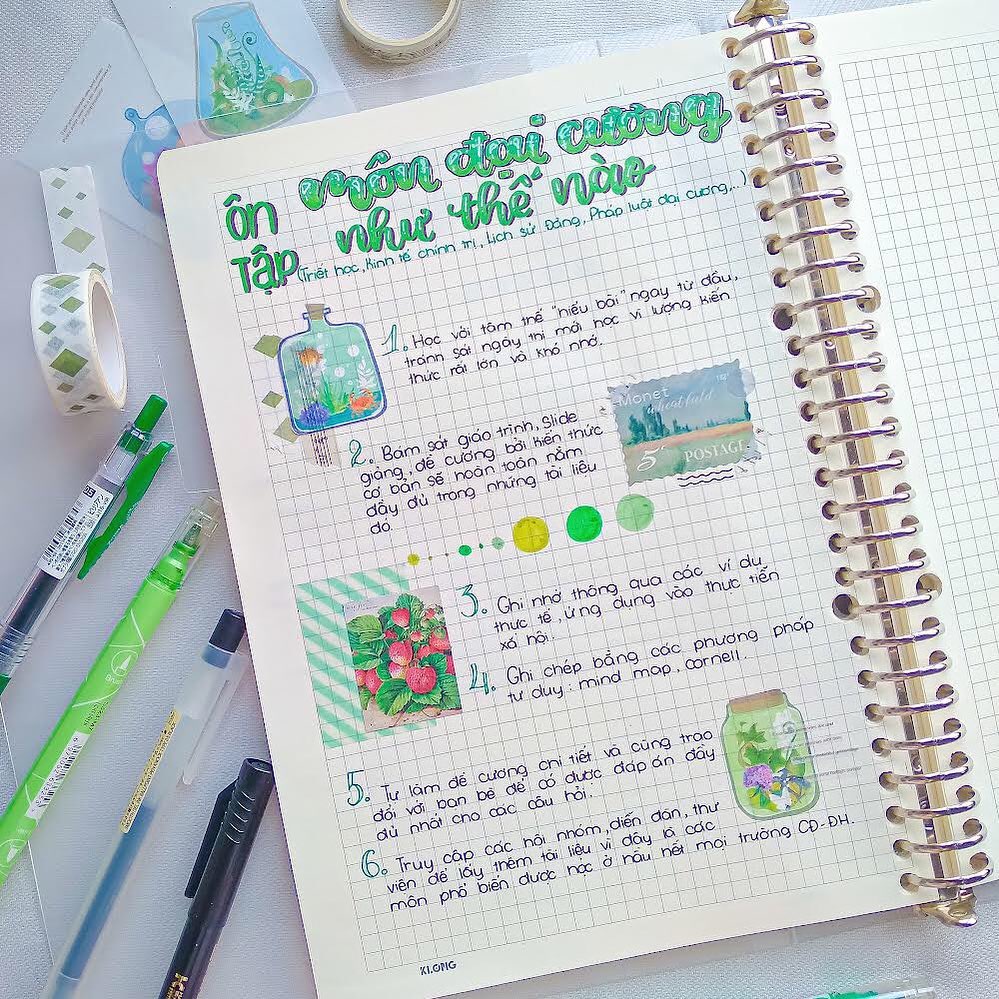 ÔN
TẬP
môn đại cương
như thế nào
(Triết học, Kinh tế chính trị, Lịch sử Đảng, Pháp luật đại cương,...)
1. Học với tâm thế "hiểu bài" ngay từ đầu,
tránh sát ngày thi mới học vì lượng kiến
thức rất lớn và khó nhớ.
2. Bám sát giáo trình, Slide
giảng, đề cương bởi kiến thức
cơ bản sẽ hoàn toàn nằm
đầy đủ trong những tài liệu
đó.
Monet
wheatfield
5
POSTAGE
3. Ghi nhớ thông qua các ví dụ
thực tế, ứng dụng vào thực tiễn
xã hội.
4. Ghi chép bằng các phương pháp
tư duy: mind map, cornell.
5. Tự làm đề cương chi tiết và cùng trao
đổi với bạn bè để có được đáp án đầy
đủ nhất cho các câu hỏi.
6. Truy cập các hội nhóm, diễn đàn, thư
viện để lấy thêm tài liệu vì đây là các
môn phổ biến được học ở hầu hết mọi trường CĐ-ĐH.
KLONG